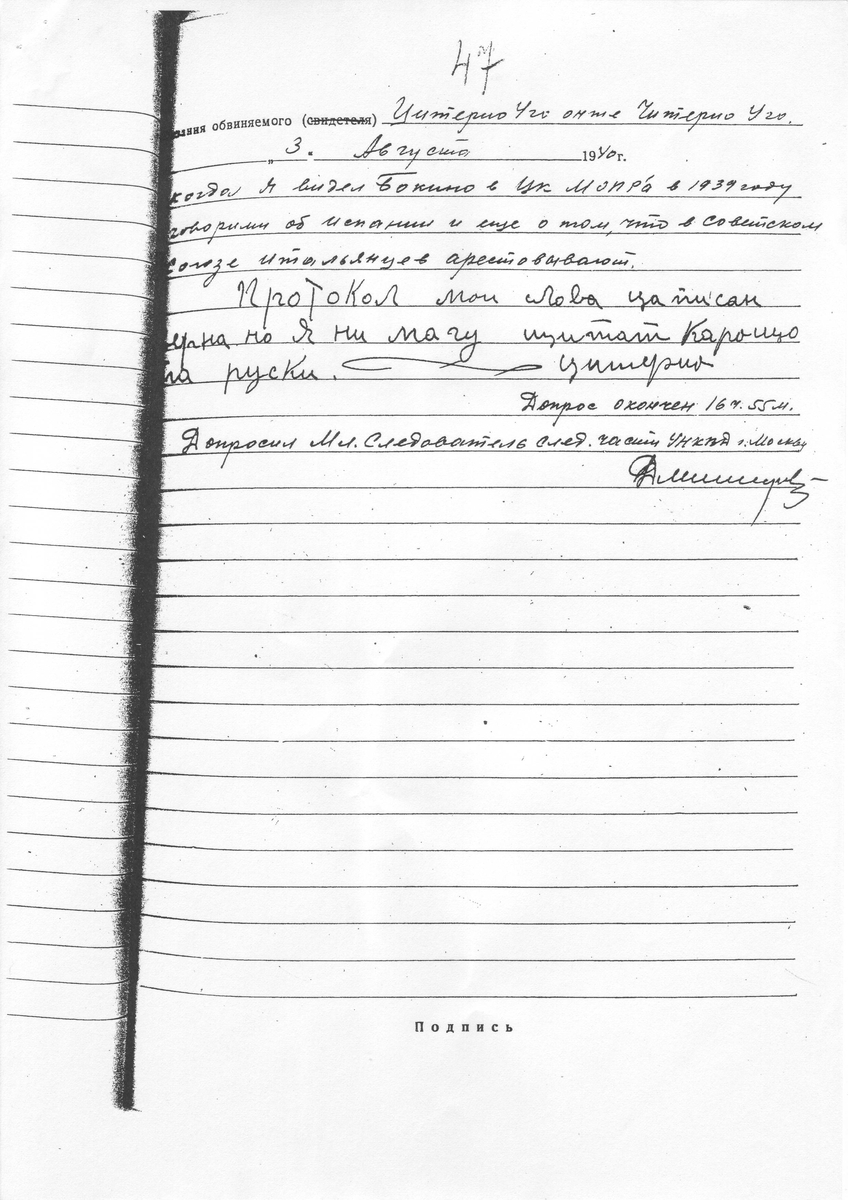 47
зания обвиняемого (свидетеля) Цитерио Уго он же Читерио Уго.
„3“ Августа 1940 г.
когда я видел Бокино в ЦК МОПРа в 1939 году
говорили об Испании и еще о том, что в Советском
Союзе итальянцев арестовывают.
Протокол мои слова цаписан
ерна но я ни магу цитат Кароцо
па руски. Цитерио
Допрос окончен 16 ч. 55 м.
Допросил Мл. Следователь след. части УНКВД г. Москвы
Подпись